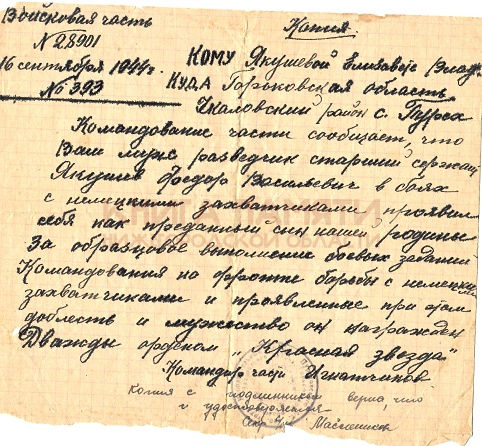 Войсковая часть
N 28901
16 сентября 1944 г.
N 393
Копия
Кому Якушевой Елизавете Влад.
Куда Горьковская область
Чкаловский район с. Пурех
Командование части сообщает, что
Ваш муж разведчик старший сержант
Якушев Федор Васильевич в боях
с немецкими захватчиками проявил
себя как преданный сын нашей родины
За образцовое выполнение боевых заданий
Командования на фронте борьбы с немецкими
захватчиками и проявленные при этом
доблесть и мужество он награжден
Дважды орденом „Красная звезда"
Командир части Игнатчиков
Копия с подлинником верна, что
и удостоверяется
Секр.